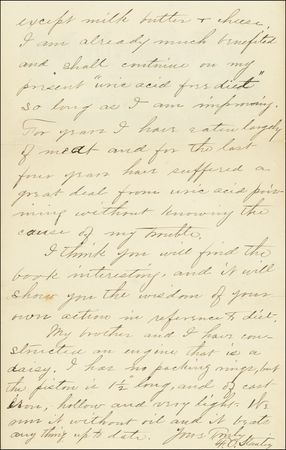 except milk butter + cheese.
I am already much benefited
and shall continue on my
present "uric acid free diet"
so long as I am improving.
For years I have eaten largely
of meat and for the last
four years have suffered a
great deal from uric acid poi-
ning without knowing the
cause of my trouble.
I think you will find the
book interesting, and it will
show you the wisdom of your
own action in reference to diet.
My brother and I have con-
structed an engine that is a
daisy. I has no packing rings, but
the piston is 1½ long, and of cast
iron, hollow and very light. We
run it without oil and it beats
any thing up to date.
Yours Truly
F. E. Stanley